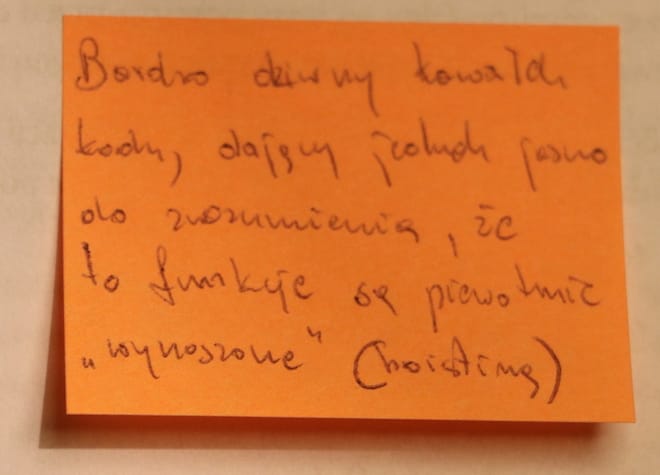 Bardzo dziwny kawałek
kodu, dający jednak jasno
do zrozumienia, że
to funkcje są pierwotnie
„wynoszone" (hoisting)